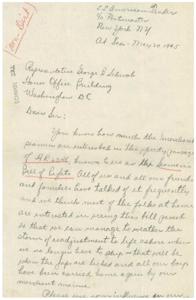 S.S. American Trader
℅ Postmaster
New York NY
At Sea - May 20 1945
Representative George B Schwabe
House Office Building
Washington DC
Dear Sir:
You know how much the merchant
are interested in the speedy passage
of known to us as the Seamen's
Bill of Rights. All of us and all our friends
and families have talked of it frequently
and we think most of the folks at home
are interested in seeing this bill passed
so that we can manage to weather the
storm of readjustment to life ashore when
we no longer have to ship - that will be
when the ships are and all our boys
have been carried home again by our
merchant marine.
Please use your influence